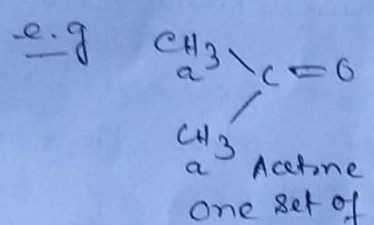 e.g CH3
a C=O
CH3
a Acetone
One set of